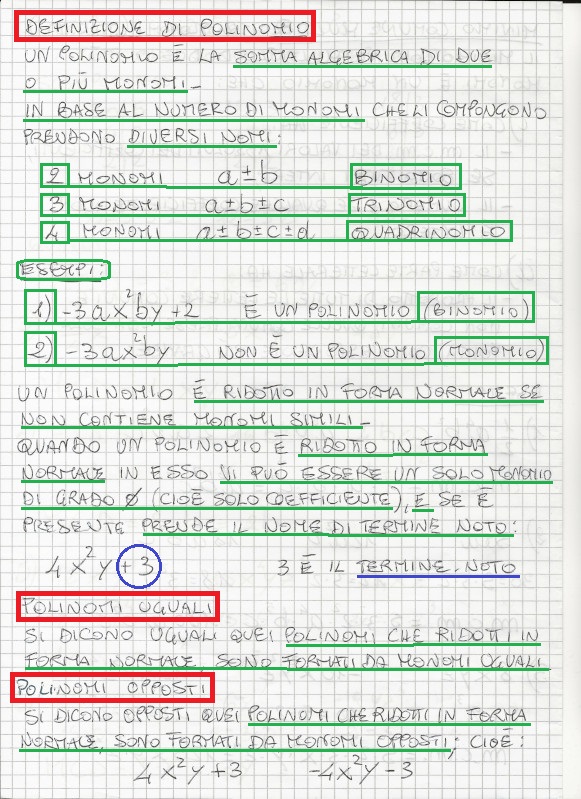 DEFINIZIONE DI POLINOMIO
UN POLINOMIO È LA SOMMA ALGEBRICA DI DUE
O PIÙ MONOMI-
IN BASE AL NUMERO DI MONOMI CHE LI COMPONGONO
PRENDONO DIVERSI NOMI:
2 MONOMI a±b BINOMIO
3 MONOMI a±b±c TRINOMIO
4 MONOMI a±b±c±d QUADRINOMIO
ESEMPI:
1) -3ax²by+2 È UN POLINOMIO (BINOMIO)
2) -3ax²by NON È UN POLINOMIO (MONOMIO)
UN POLINOMIO È RIDOTTO IN FORMA NORMALE SE
NON CONTIENE MONOMI SIMILI-
QUANDO UN POLINOMIO È RIDOTTO IN FORMA
NORMALE IN ESSO VI PUÒ ESSERE UN SOLO MONOMIO
DI GRADO Ø (CIOÈ SOLO COEFFICIENTE), E SE È
PRESENTE PRENDE IL NOME DI TERMINE NOTO:
4x²y+3 3 È IL TERMINE NOTO
POLINOMI UGUALI
SI DICONO UGUALI QUEI POLINOMI CHE RIDOTTI IN
FORMA NORMALE, SONO FORMATI DA MONOMI UGUALI
POLINOMI OPPOSTI
SI DICONO OPPOSTI QUEI POLINOMI CHE RIDOTTI IN FORMA
NORMALE, SONO FORMATI DA MONOMI OPPOSTI; CIOÈ:
4x²y+3 -4x²y-3